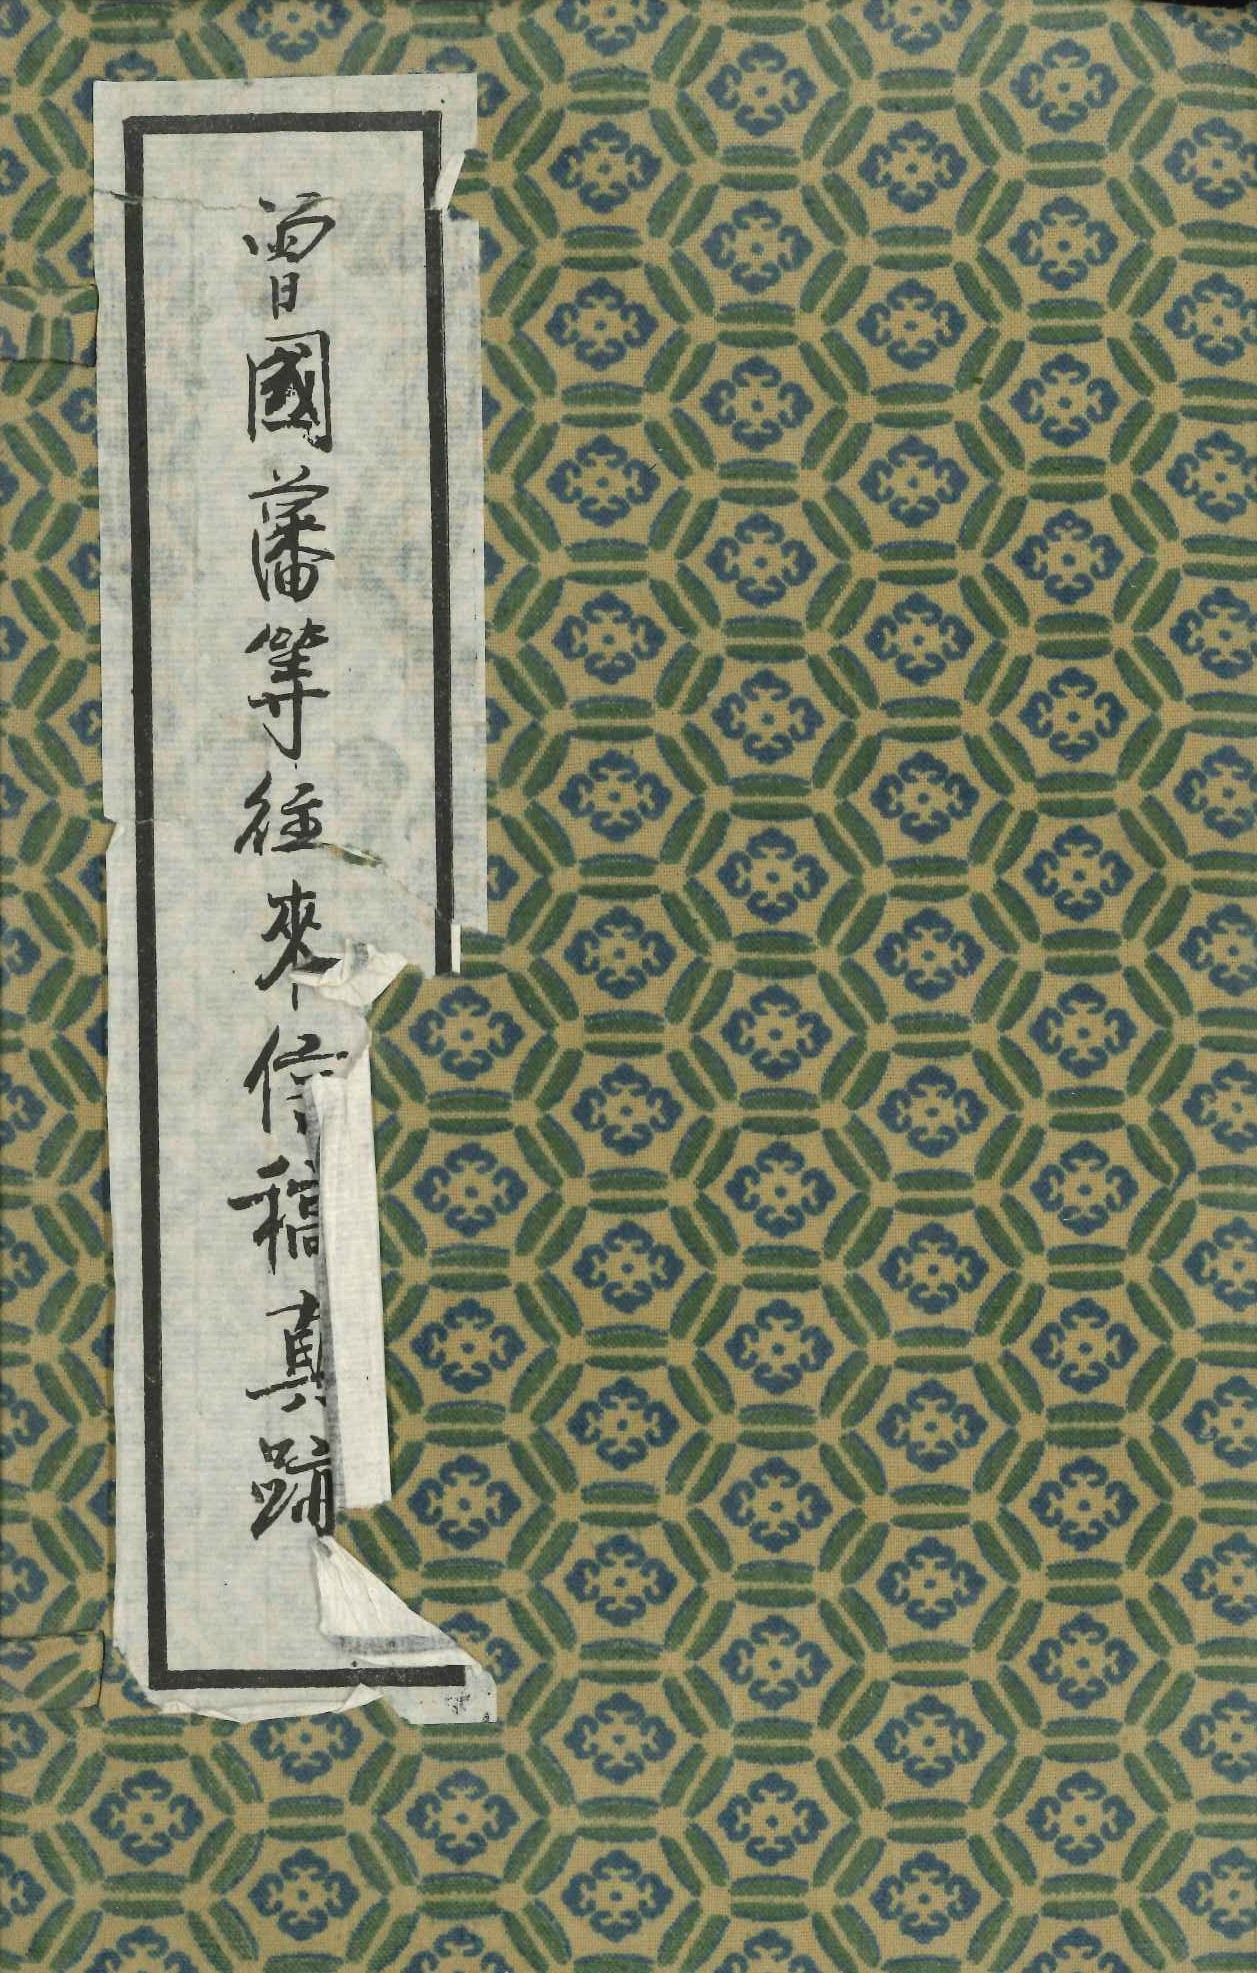 曾國藩等往來信稿真蹟